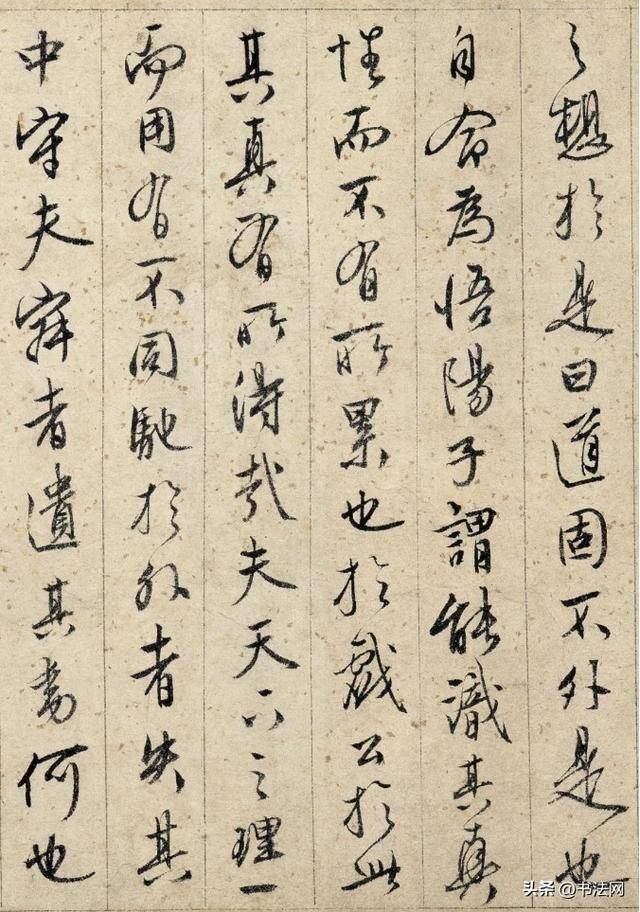 之想於是曰道固不外是也
自命為悟陽子謂能識其真
性而不有所累也於戲公於此
其真有所得哉夫天下之理一
而用有不同馳於外者失其
中守夫寂者遺其何也
头条 @书法网